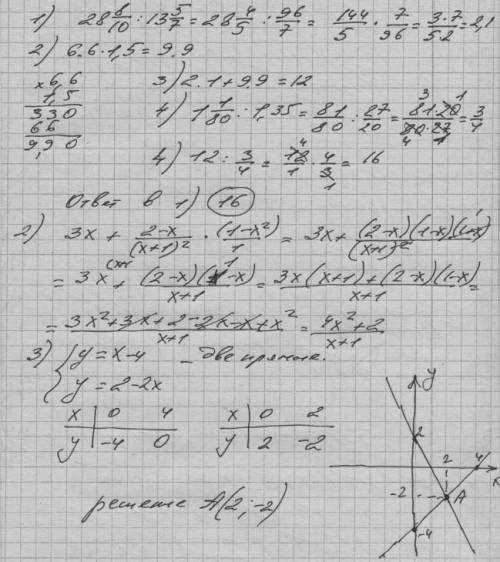 1) 28 8/10 : 13 5/7 = 28 4/5 : 96/7 = 144/5 · 7/96 = 3·7/5·2 = 2,1
2) 6.6·1,5 = 9.9
×6,6
1,5
330
66
9,90
3) 2.1+9.9=12
4) 1 1/80 : 1,35 = 81/80 : 27/20 = 81·20/80·27 = 3/4
4) 12 : 3/4 = 12/1 · 4/3 = 16
Ответ в 1) 16
2) 3x + 2-x/(x+1)² · (1-x²)/1 = 3x + (2-x)(1-x)(1+x)/(x+1)²
= 3x + (2-x)(1-x)/x+1 = 3x(x+1)+(2-x)(1-x)/x+1 =
= 3x²+3x+2-2x-x+x²/x+1 = 4x²+2/x+1
3) { y=x-4 _ две прямые.
y=2-2x
x | 0 4
y | -4 0
x | 0 2
y | 2 -2
решение A(2;-2)
y
2
2
4
x
-2
A
-4